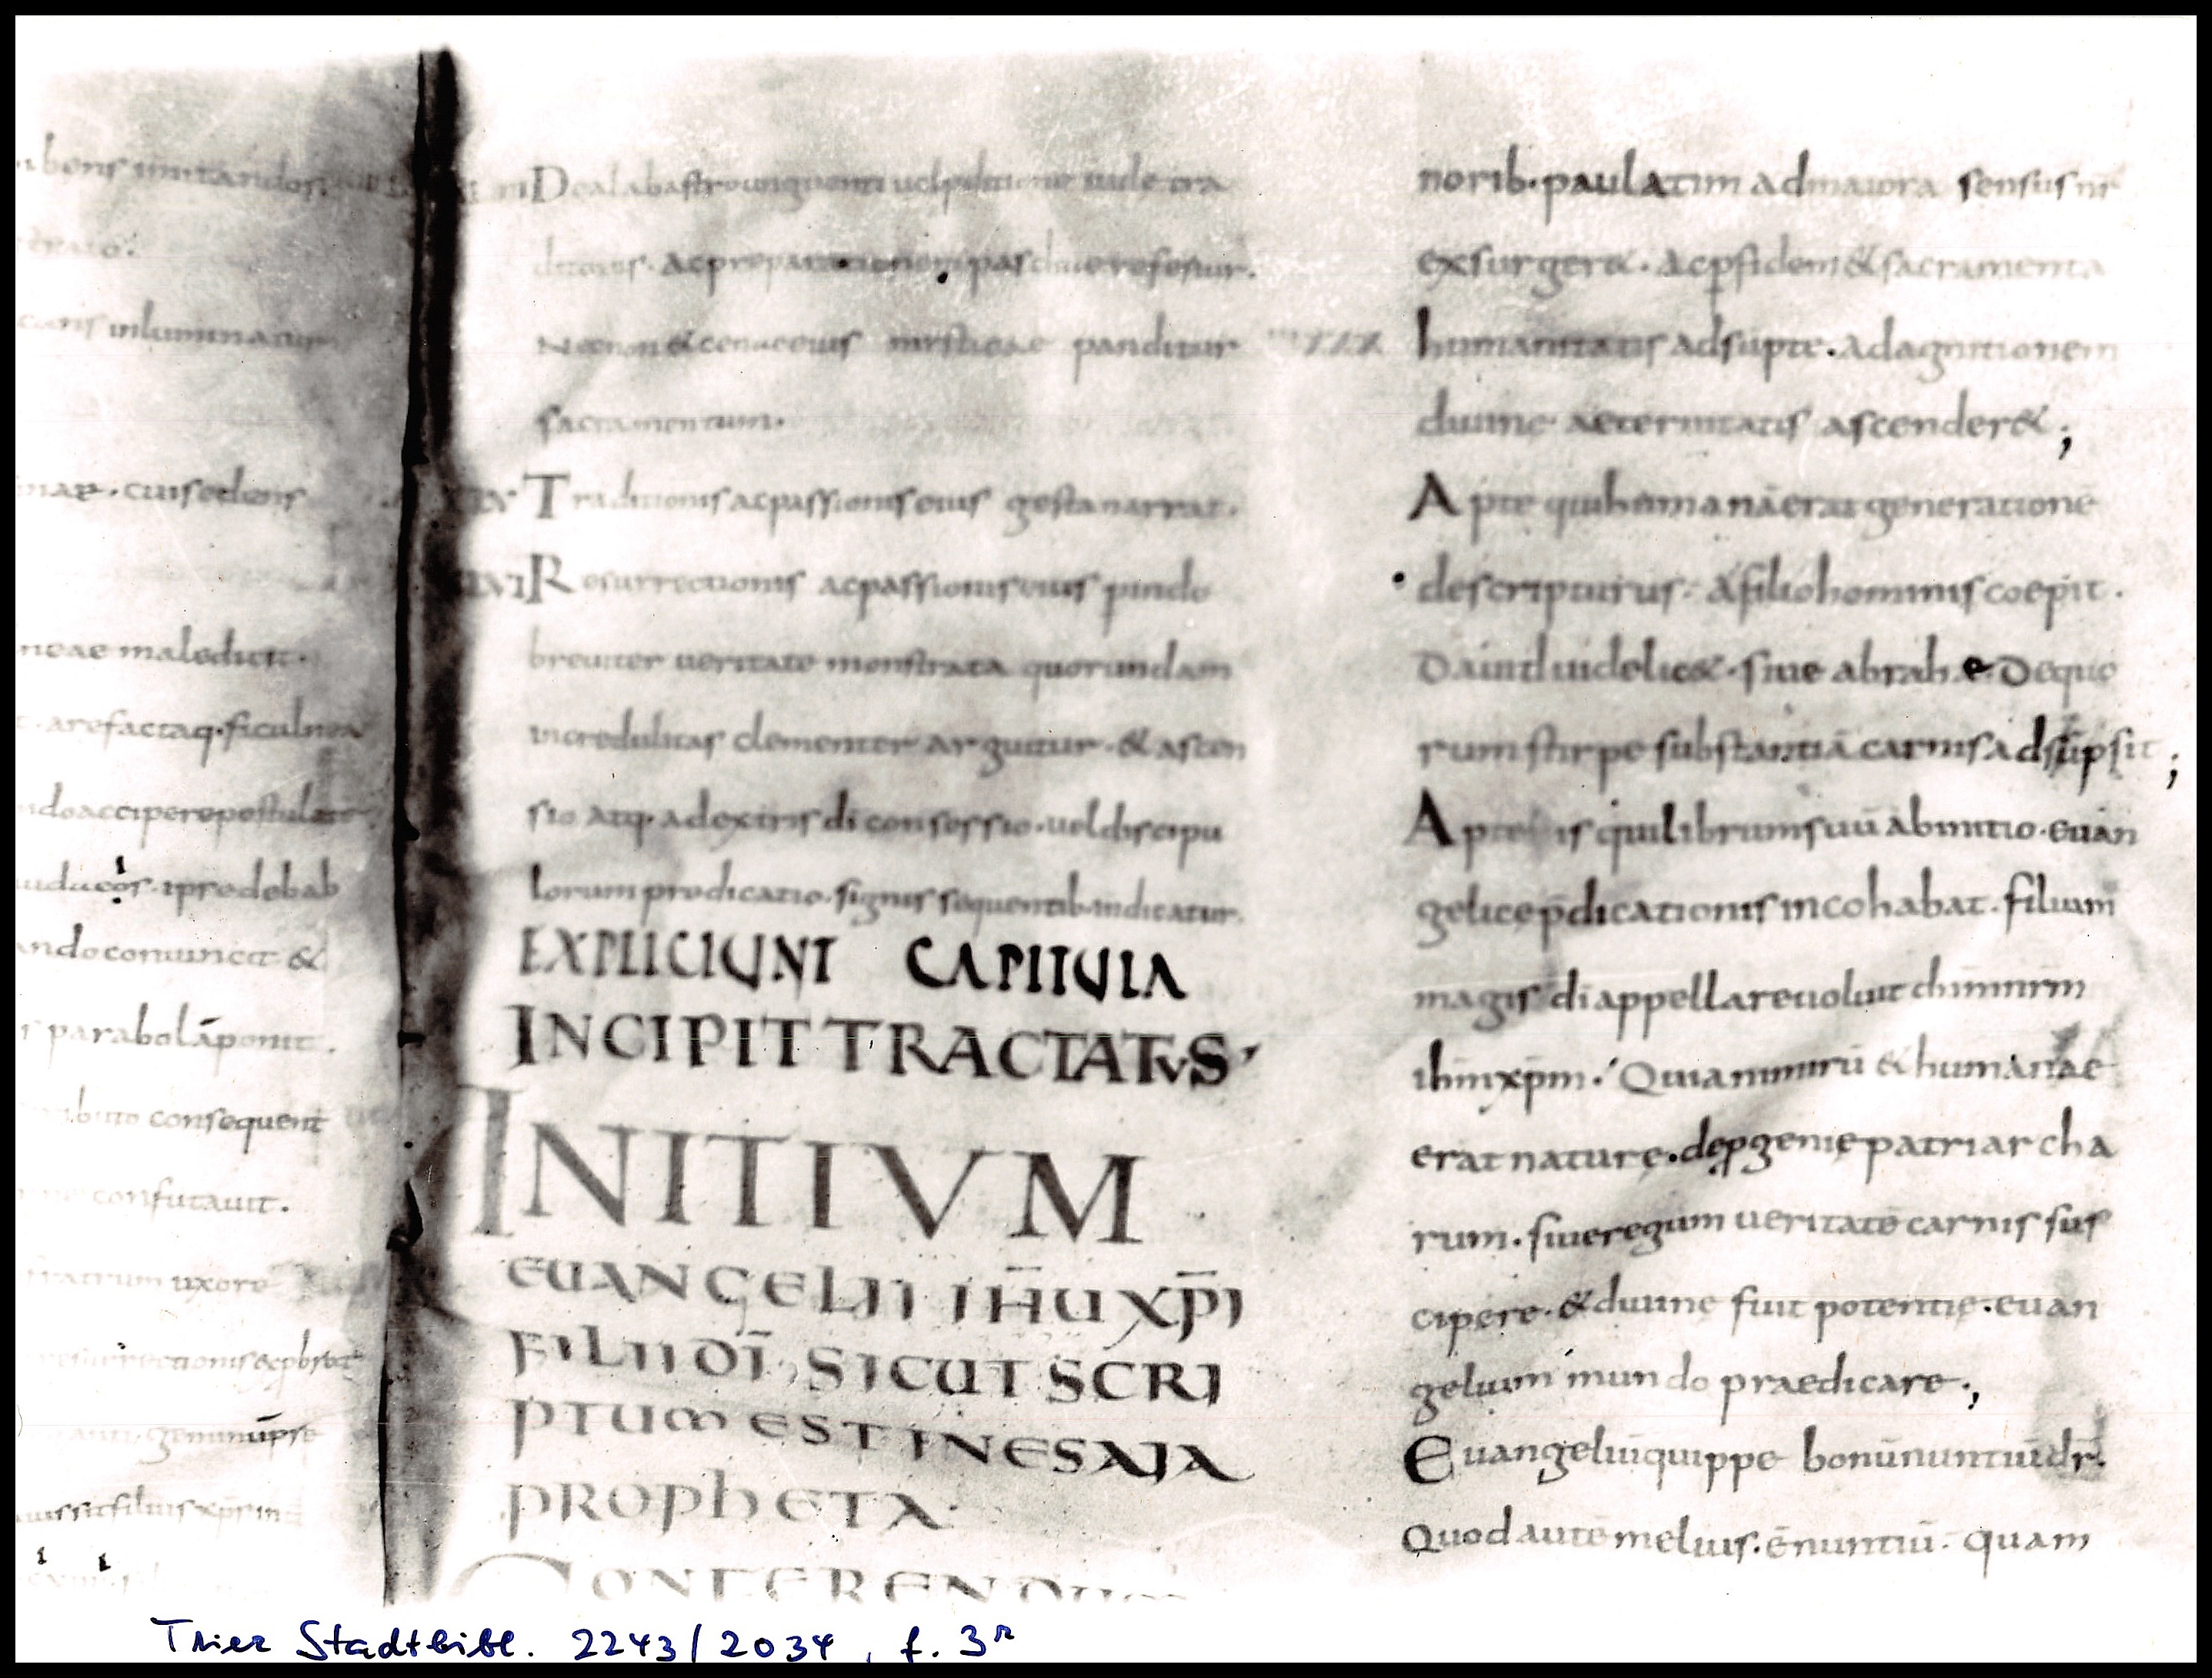 bens imitandos.
inluminatur
cuisedens
neae maledicit.
arefactaq. ficulnea
accipere postulate
ipse debab
ando conuincit &
parabolā ponit.
consequent
confutauit.
fratrum uxore
resurrectionis
genimū ipse
sit filius xp̄s in
De alabastro unguenti uel p̄ditione iude tra
ditoris. ac preparationem paschae refertur.
Necnon & cenae eius misticae panditur
sacramentum.
XLV Traditionis ac passionis eius gesta narrat.
XLVI Resurrectionis ac passionis eius
breuiter ueritate monstrata quorundam
incredulitas clementer arguitur. & ascen
sio atq. a dextris dī consessio. uel discipu
lorum predicatio. signis sequentib. indicatur.
EXPLICIUNT CAPITULA
INCIPIT TRACTATUS
INITIVM
EUANGELII IHU XPI
FILII DI. SICUT SCRI
PTUM EST IN ESAIA
PROPHETA.
CONFERENDUM
norib. paulatim ad maiora sensus nr̄
exsurger&. Ac p̱ fidem & sacramenta
humanitatis adsūpte. ad agnitionem
diuine aeternitatis ascender&;
Apte qui humanā erat generationē
descripturus. A filio hominis coepit.
Dauid uidelic&. siue abrahe. De quo
rum stirpe substantiā carnis adsūpsit;
Apte is qui librum suū ab initio. euan
gelice p̄dicationis incohabat. filium
magis dī appellare uoluit dn̄m nr̄m
ihm̄ xpm̄. Quia nimirū & humanae
erat nature. de p̱genie patriarcha
rum. siue regum ueritatē carnis sus
cipere. & diuine fuit potentie. euan
gelium mundo praedicare.;
Euangeliū quippe bonū nuntiū dr̄.
Quod autē melius. ē nuntiū. quam
Trier Stadtbibl. 2243/2034, f. 3r